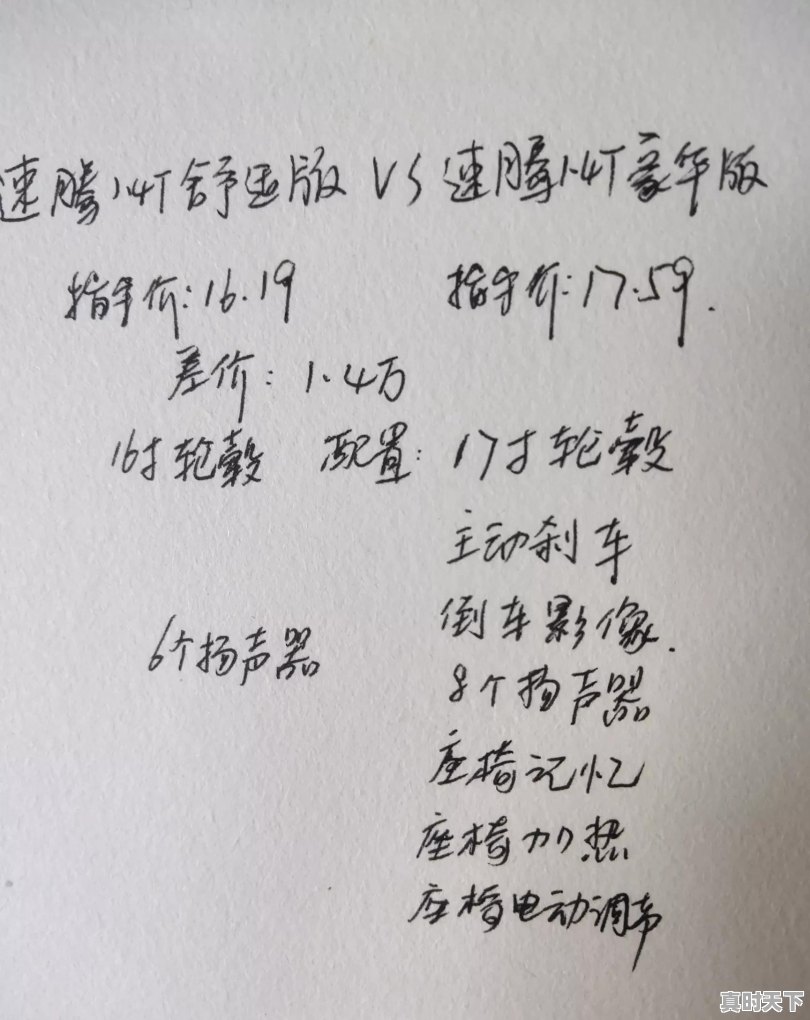 速腾1.4T舒适版 VS 速腾1.4T豪华版
指导价:16.19 指导价:17.59.
差价:1.4万
16寸轮毂 配置:17寸轮毂
主动刹车
倒车影像.
6个扬声器
8个扬声器
座椅记忆
座椅加热
座椅电动调节
真时天下